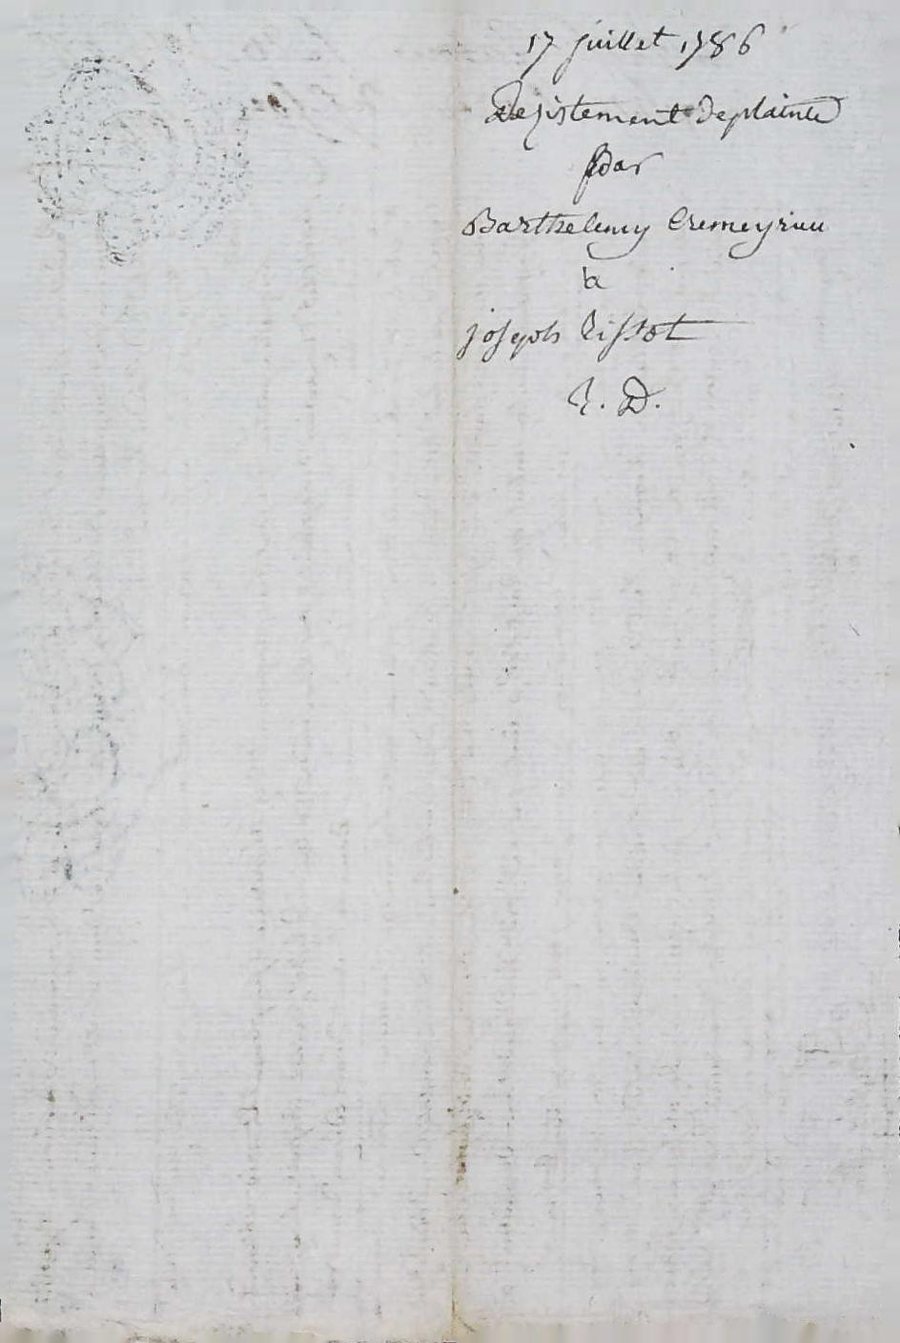 17 juillet 1786
Dezistement deplainte
par
Barthelemy Cremeyrieu
a
joseph Tissot